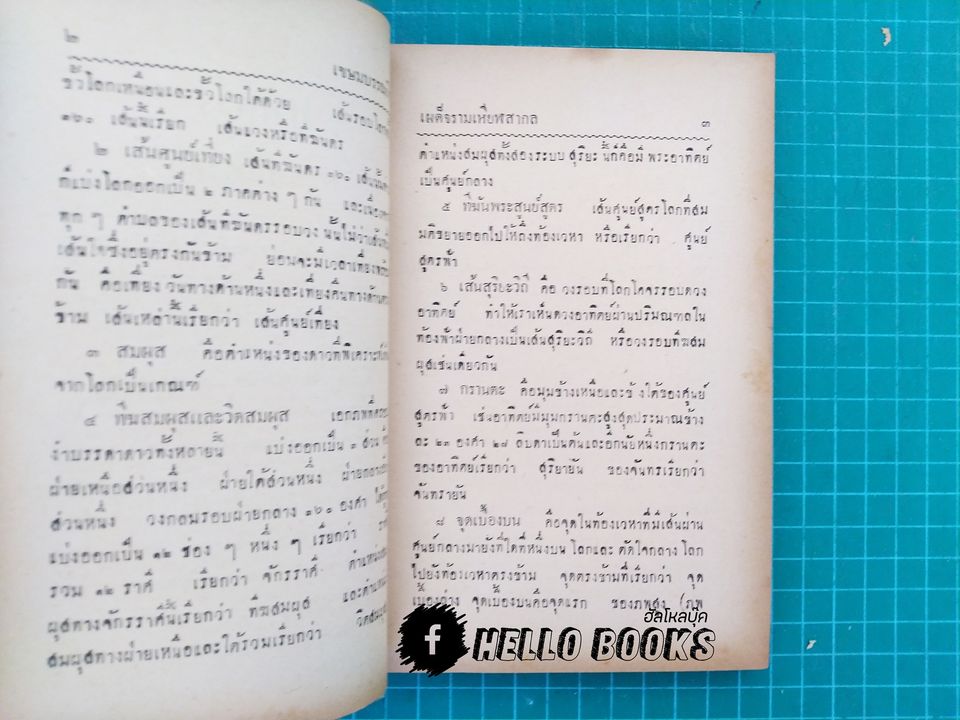 ๒
ขั้วโลกเหนือและขั้วโลกใต้ด้วย เส้นรอบ
๓๖๐ เส้นนี้เรียก เส้นแวงหรือทีฆันดร
๒ เส้นศูนย์เที่ยง เส้นทีฆันดร ๓๖๐ เส้นนั้น
ก็แบ่งโลกออกเป็น ๒ ภาคต่าง ๆ กัน และเมื่อ
ทุก ๆ ตำบลของเส้นทีฆันดรรอบวง นั้นไม่ว่าเส้น
เส้นใจซึ่งอยู่ตรงกันข้าม ย่อมจะมีเวลาเที่ยง
กัน คือเที่ยง วันทางด้านหนึ่งและเที่ยงคืนทางด้าน
ข้าม เส้นเหล่านี้เรียกว่า เส้นศูนย์เที่ยง
๓ สมผุส คือตำแหน่งของดาวที่พิเคราะห์
จากโลกเป็นเกณฑ์
๔ ทีฆสมผุสและวิตสมผุส เอกภพที่
งำบรรดาดาวทั้งหลายนี้ แบ่งออกเป็น ๓ ส่วน
ฝ่ายเหนือส่วนหนึ่ง ฝ่ายใต้ส่วนหนึ่ง ฝ่ายกลาง
ส่วนหนึ่ง วงกลมรอบฝ่ายกลาง ๓๖๐ องศา ได้
แบ่งออกเป็น ๑๒ ช่อง ๆ หนึ่ง ๆ เรียกว่า
รวม ๑๒ ราศี เรียกว่า จักรราศี ตำแหน่ง
ผุสทางจักรราศีนี้เรียกว่า ทีฆสมผุส และตำแหน่ง
สมผุสทางฝ่ายเหนือและใต้รวมเรียกว่า วิตสมผุส
เผด็จรามเหียฬสากล ๓
ตำแหน่งสมผุสทั้งสองระบบ สุริยะ นี้ก็คือมี พระอาทิตย์
เป็นศูนย์กลาง
๕ ทีฆันพระสูนย์สูตร เส้นศูนย์สูตรโลกที่สม
มติขยายออกไปให้ถึงท้องเวหา หรือเรียกว่า ศูนย์
สูตรฟ้า
๖ เส้นสุริยะวิถี คือ วงรอบที่โลกโคจรรอบดวง
อาทิตย์ ทำให้เราเห็นดวงอาทิตย์ผ่านปริมณฑลใน
ท้องฟ้าฝ่ายกลางเป็นเส้นสุริยะวิถี หรือวงรอบทีฆสม
ผุสเช่นเดียวกัน
๗ กรานตะ คือมุมข้างเหนือและข้างใต้ของศูนย์
สูตรฟ้า เช่นอาทิตย์มีมุมกรานตะสูงสุดประมาณข้าง
ละ ๒๓ องศา ๒๗ ลิบดาเป็นต้นและอีกนัยหนึ่งกรานตะ
ของอาทิตย์เรียกว่า สุริยายัน ของจันทรเรียกว่า
จันทรายัน
๘ จุดเบื้องบน คือจุดในท้องเวหาที่มีเส้นผ่าน
ศูนย์กลางมายังที่ใดที่หนึ่งบน โลกและ ตัดใจกลาง โลก
ไปยังท้องเวหาตรงข้าม จุดตรงข้ามที่เรียกว่า จุด
เบื้องล่าง จุดเบื้องบนคือจุดแรก ของภพสูง (ภพ
ฮัลโหลบุ๊ค
f HELLO BOOKS